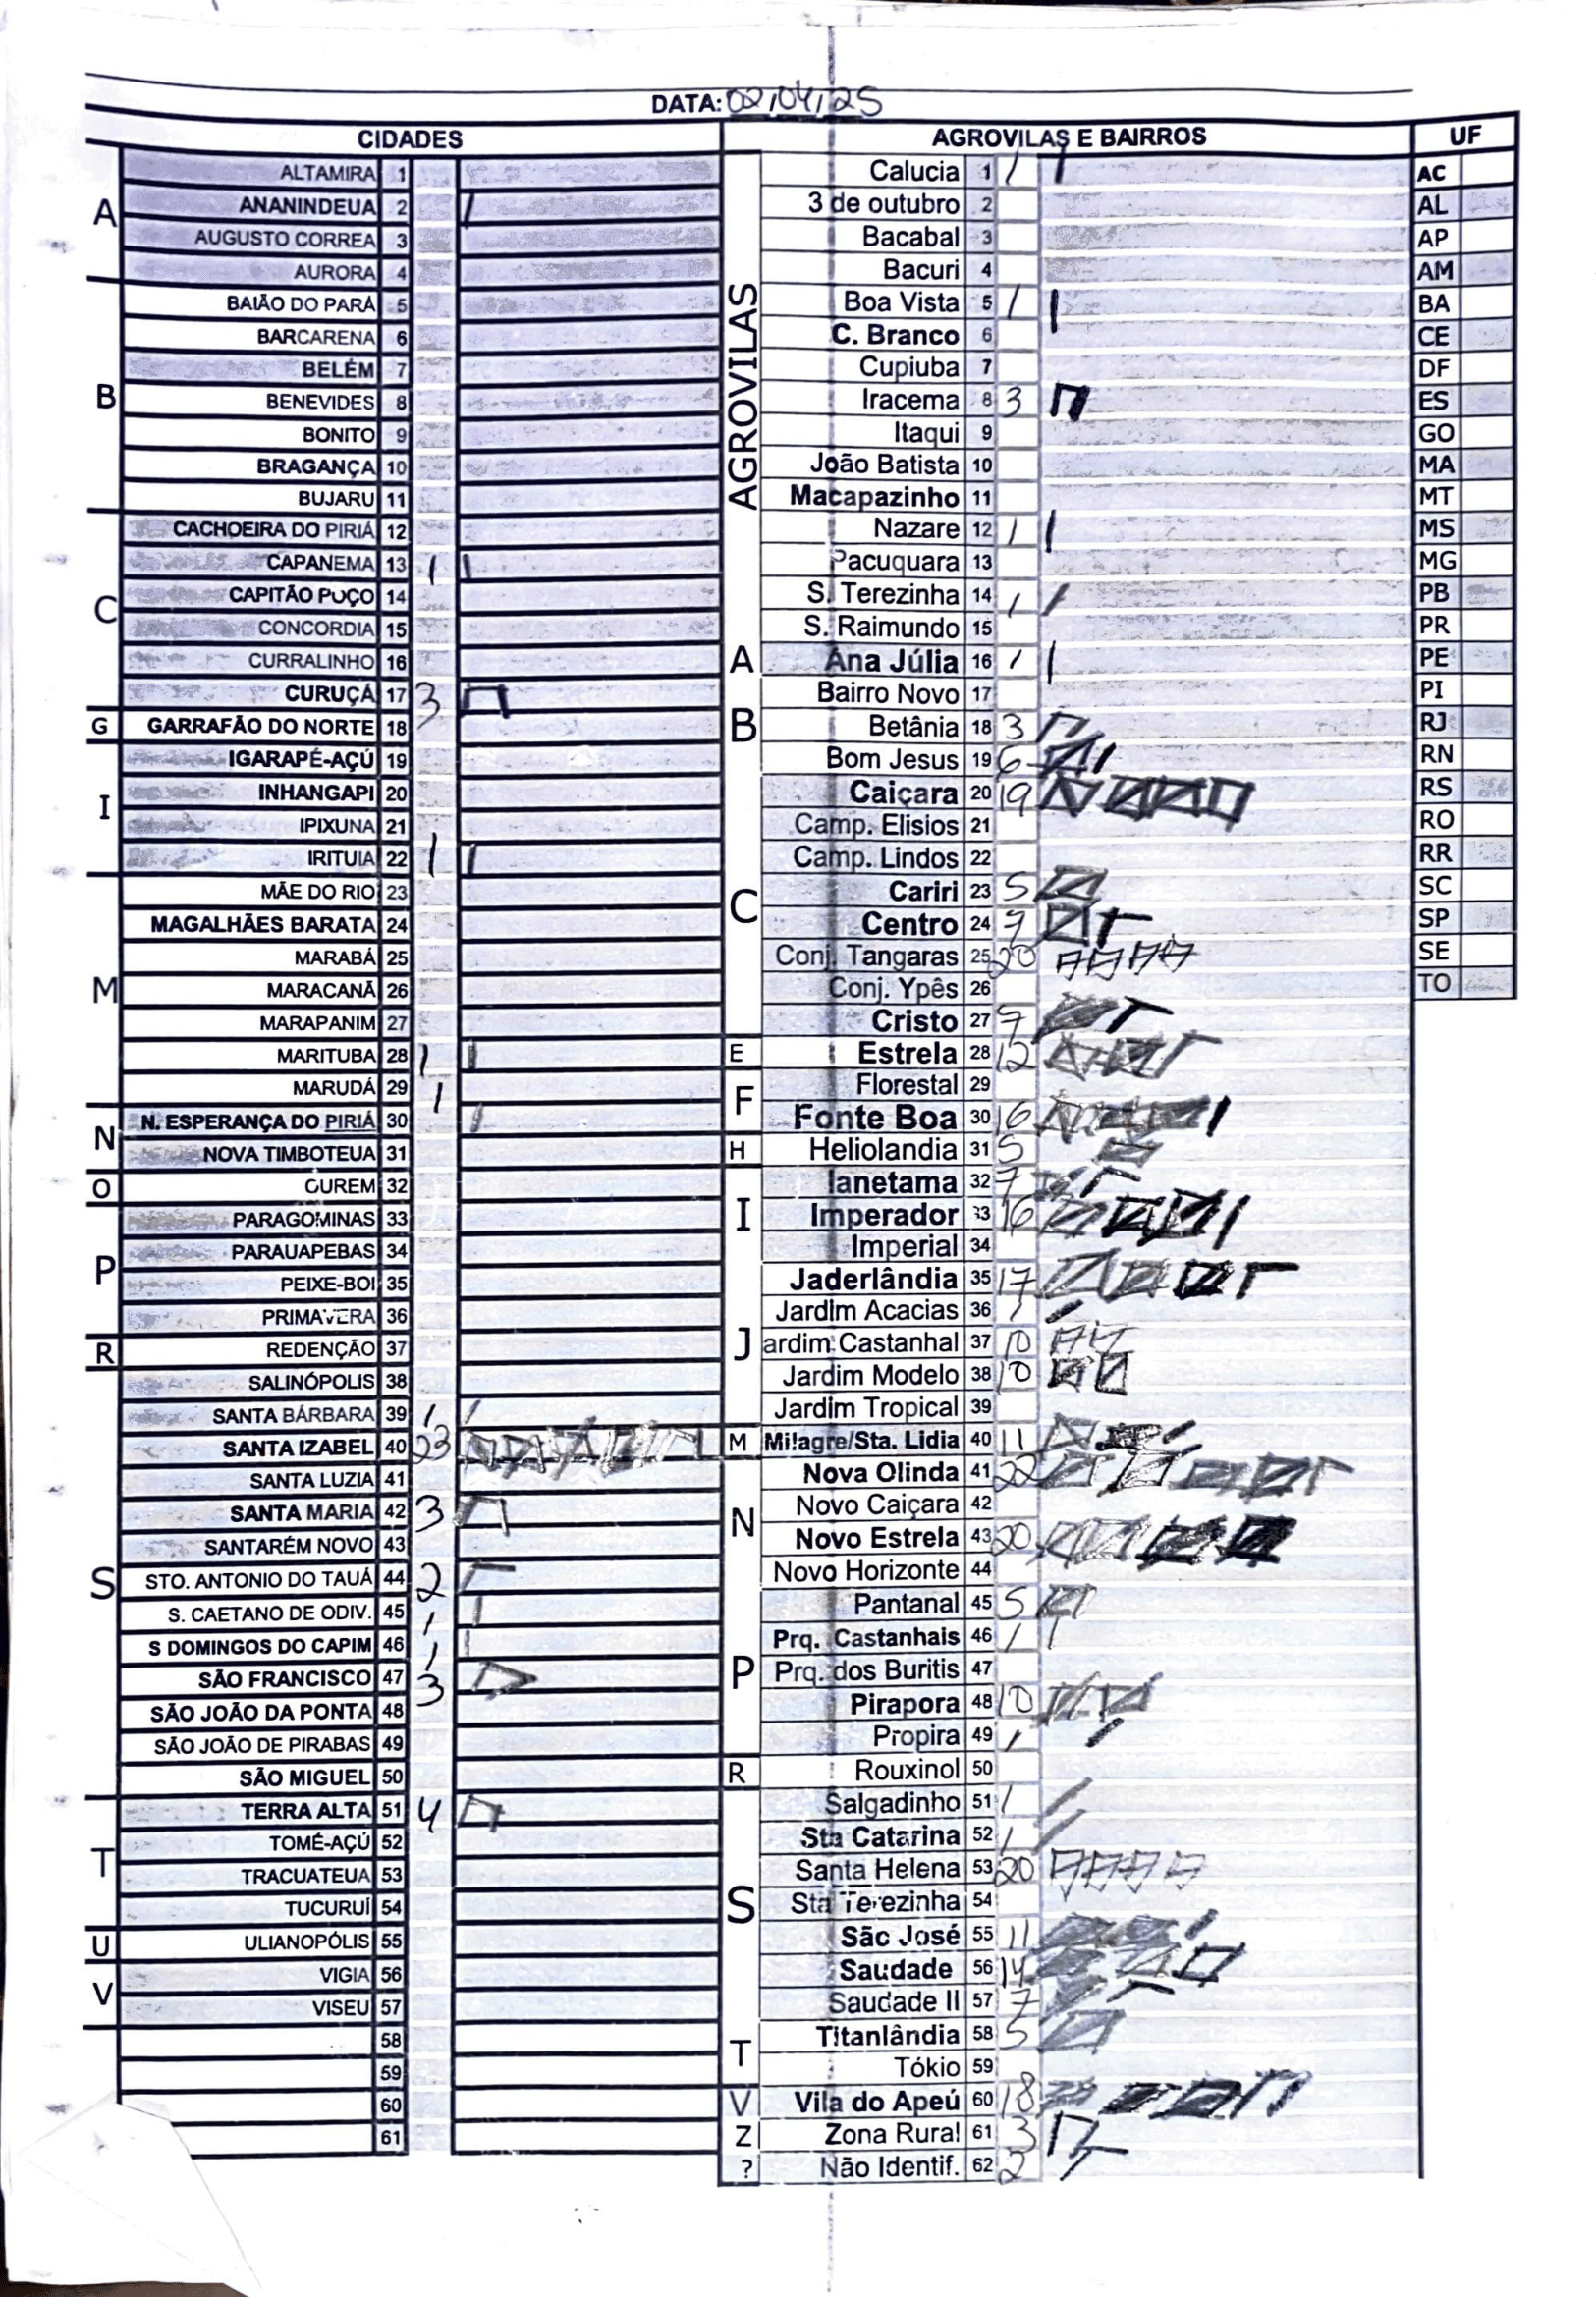 DATA: 02/04/25
CIDADES AGROVILAS E BAIRROS UF
A
ALTAMIRA 1
ANANINDEUA 2
AUGUSTO CORREA 3
AURORA 4
B
BAIÃO DO PARÁ 5
BARCARENA 6
BELÉM 7
BENEVIDES 8
BONITO 9
BRAGANÇA 10
BUJARU 11
C
CACHOEIRA DO PIRIÁ 12
CAPANEMA 13 1
CAPITÃO POÇO 14
CONCORDIA 15
CURRALINHO 16
CURUÇÁ 17 3
G
GARRAFÃO DO NORTE 18
I
IGARAPÉ-AÇÚ 19
INHANGAPI 20
IPIXUNA 21
IRITUIA 22 1
M
MÃE DO RIO 23
MAGALHÃES BARATA 24
MARABÁ 25
MARACANÃ 26
MARAPANIM 27
MARITUBA 28 1
MARUDÁ 29 1
N
N. ESPERANÇA DO PIRIÁ 30
NOVA TIMBOTEUA 31
O
OUREM 32
P
PARAGOMINAS 33
PARAUAPEBAS 34
PEIXE-BOI 35
PRIMAVERA 36
R
REDENÇÃO 37
S
SALINÓPOLIS 38
SANTA BÁRBARA 39 1
SANTA IZABEL 40 23
SANTA LUZIA 41
SANTA MARIA 42 3
SANTARÉM NOVO 43
STO. ANTONIO DO TAUÁ 44 2
S. CAETANO DE ODIV. 45 1
S DOMINGOS DO CAPIM 46 1
SÃO FRANCISCO 47 3
SÃO JOÃO DA PONTA 48
SÃO JOÃO DE PIRABAS 49
SÃO MIGUEL 50
T
TERRA ALTA 51 4
TOMÉ-AÇÚ 52
TRACUATEUA 53
TUCURUÍ 54
U
ULIANOPÓLIS 55
V
VIGIA 56
VISEU 57
58
59
60
61
AGROVILAS
Calucia 1 1
3 de outubro 2
Bacabal 3
Bacuri 4
Boa Vista 5 1
C. Branco 6
Cupiuba 7
Iracema 8 3
Itaqui 9
João Batista 10
Macapazinho 11
Nazare 12 1
Pacuquara 13
S. Terezinha 14 1
S. Raimundo 15
A
Ana Júlia 16 1
Bairro Novo 17
B
Betânia 18 3
Bom Jesus 19 6
Caiçara 20 19
Camp. Elisios 21
Camp. Lindos 22
C
Cariri 23 5
Centro 24 7
Conj. Tangaras 25 20
Conj. Ypês 26
Cristo 27 9
E
Estrela 28 12
F
Florestal 29
Fonte Boa 30 16
H
Heliolandia 31 5
I
Ianetama 32 7
Imperador 33 16
Imperial 34
J
Jaderlândia 35 17
Jardim Acacias 36 1
ardim Castanhal 37 10
Jardim Modelo 38 10
Jardim Tropical 39
M
Milagre/Sta. Lidia 40 11
N
Nova Olinda 41 22
Novo Caiçara 42
Novo Estrela 43 20
Novo Horizonte 44
P
Pantanal 45 5
Prq. Castanhais 46 1
Prq. dos Buritis 47
Pirapora 48 10
Propira 49 1
R
Rouxinol 50
S
Salgadinho 51 1
Sta Catarina 52 1
Santa Helena 53 20
Sta Terezinha 54
São José 55 11
Saudade 56 14
Saudade II 57 7
T
Titanlândia 58 5
Tókio 59
V
Vila do Apeú 60 18
Z
Zona Rural 61 3
?
Não Identif. 62 2
AC
AL
AP
AM
BA
CE
DF
ES
GO
MA
MT
MS
MG
PB
PR
PE
PI
RJ
RN
RS
RO
RR
SC
SP
SE
TO